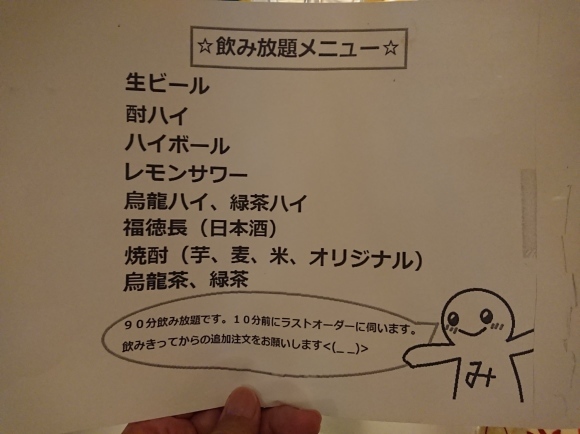 ☆飲み放題メニュー☆
生ビール
酎ハイ
ハイボール
レモンサワー
烏龍ハイ、緑茶ハイ
福徳長（日本酒）
焼酎（芋、麦、米、オリジナル）
烏龍茶、緑茶
９０分飲み放題です。１０分前にラストオーダーに伺います。
飲みきってからの追加注文をお願いします<(_ _)>
み